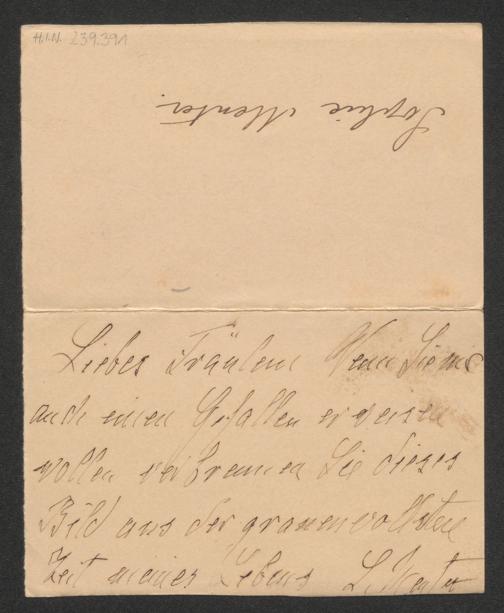 H.I.N. 239.391
Sophie Menter.
Liebes Fräulein Wenn Sie mir
auch einen Gefallen erweisen
wollen verbrennen Sie dieses
Bild aus der grauenvollsten
Zeit meines Lebens S. Menter